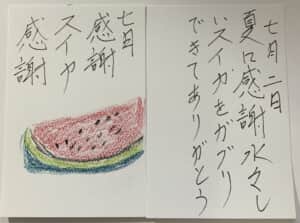 七月二日
夏に感謝水々し
いスイカをガブリ
できてありがとう
七日
感謝
スイカ
感謝